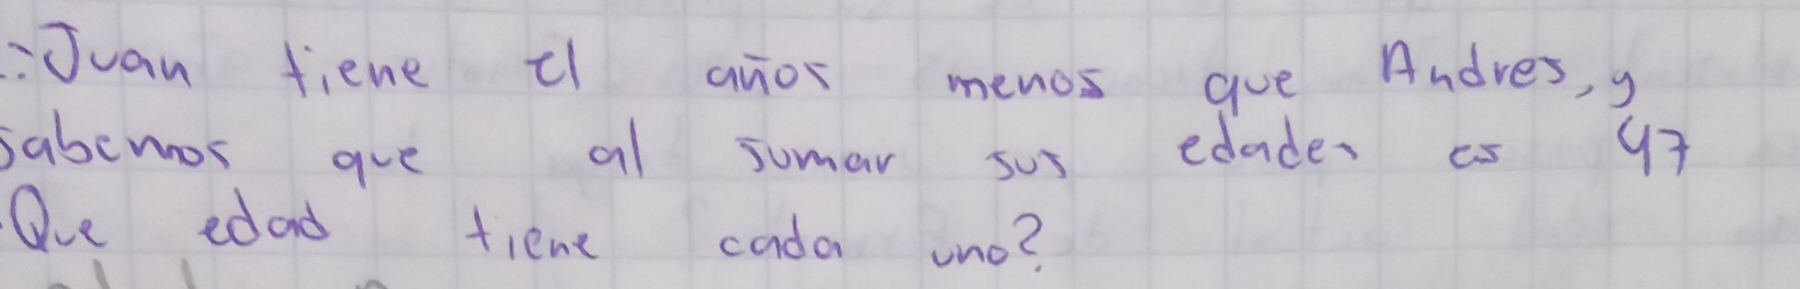 ∴ Juan tiene el años menos que Andres, y
sabemos que al sumar sus edades es 47
Que edad tiene cada uno?